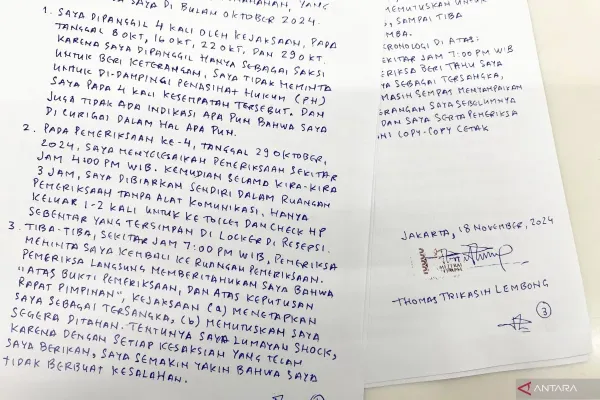 SAYA DI BULAN OKTOBER 2024.
1. SAYA DIPANGGIL 4 KALI OLEH KEJAKSAAN, PADA
TANGGAL 8 OKT, 16 OKT, 22 OKT, DAN 29 OKT.
KARENA SAYA DIPANGGIL HANYA SEBAGAI SAKSI
UNTUK BERI KETERANGAN, SAYA TIDAK MEMINTA
UNTUK DI-DAMPINGI PENASIHAT HUKUM (PH)
SAYA PADA 4 KALI KESEMPATAN TERSEBUT. DAN
JUGA TIDAK ADA INDIKASI APA PUN BAHWA SAYA
DI CURIGAI DALAM HAL APA PUN.
2. PADA PEMERIKSAAN KE-4, TANGGAL 29 OKTOBER,
2024, SAYA MENYELESAIKAN PEMERIKSAAN SEKITAR
JAM 4:00 PM WIB. KEMUDIAN SELAMA KIRA-KIRA
3 JAM, SAYA DIBIARKAN SENDIRI DALAM RUANGAN
PEMERIKSAAN TANPA ALAT KOMUNIKASI, HANYA
KELUAR 1-2 KALI UNTUK KE TOILET DAN CHECK HP
SEBENTAR YANG TERSIMPAN DI LOCKER DI RESEPSI.
3. TIBA-TIBA, SEKITAR JAM 7:00 PM WIB, PEMERIKSA
MEMINTA SAYA KEMBALI KE RUANGAN PEMERIKSAAN.
PEMERIKSA LANGSUNG MEMBERITAHUKAN SAYA BAHWA
"ATAS BUKTI PEMERIKSAAN, DAN ATAS KEPUTUSAN
RAPAT PIMPINAN", KEJAKSAAN (a) MENETAPKAN
SAYA SEBAGAI TERSANGKA, (b) MEMUTUSKAN SAYA
SEGERA DITAHAN. TENTUNYA SAYA LUMAYAN SHOCK,
KARENA DENGAN SETIAP KESAKSIAN YANG TELAH
SAYA BERIKAN, SAYA SEMAKIN YAKIN BAHWA SAYA
TIDAK BERBUAT KESALAHAN.
MEMUTUSKAN UNTUK
, SAMPAI TIBA
MBA.
RONOLOGI DI ATAS:
EKITAR JAM 7:00 PM WIB
ERIKSA BERI TAHU SAYA
YA SEBAGAI TERSANGKA,
MASIH SEMPAT MENYAMPAIKAN
ERANGAN SAYA SEBELUMNYA
DAN SAYA SERTA PEMERIKSA
NI COPY-COPY CETAK
JAKARTA, 18 NOVEMBER, 2024
THOMAS TRIKASIH LEMBONG
3
ANTARA